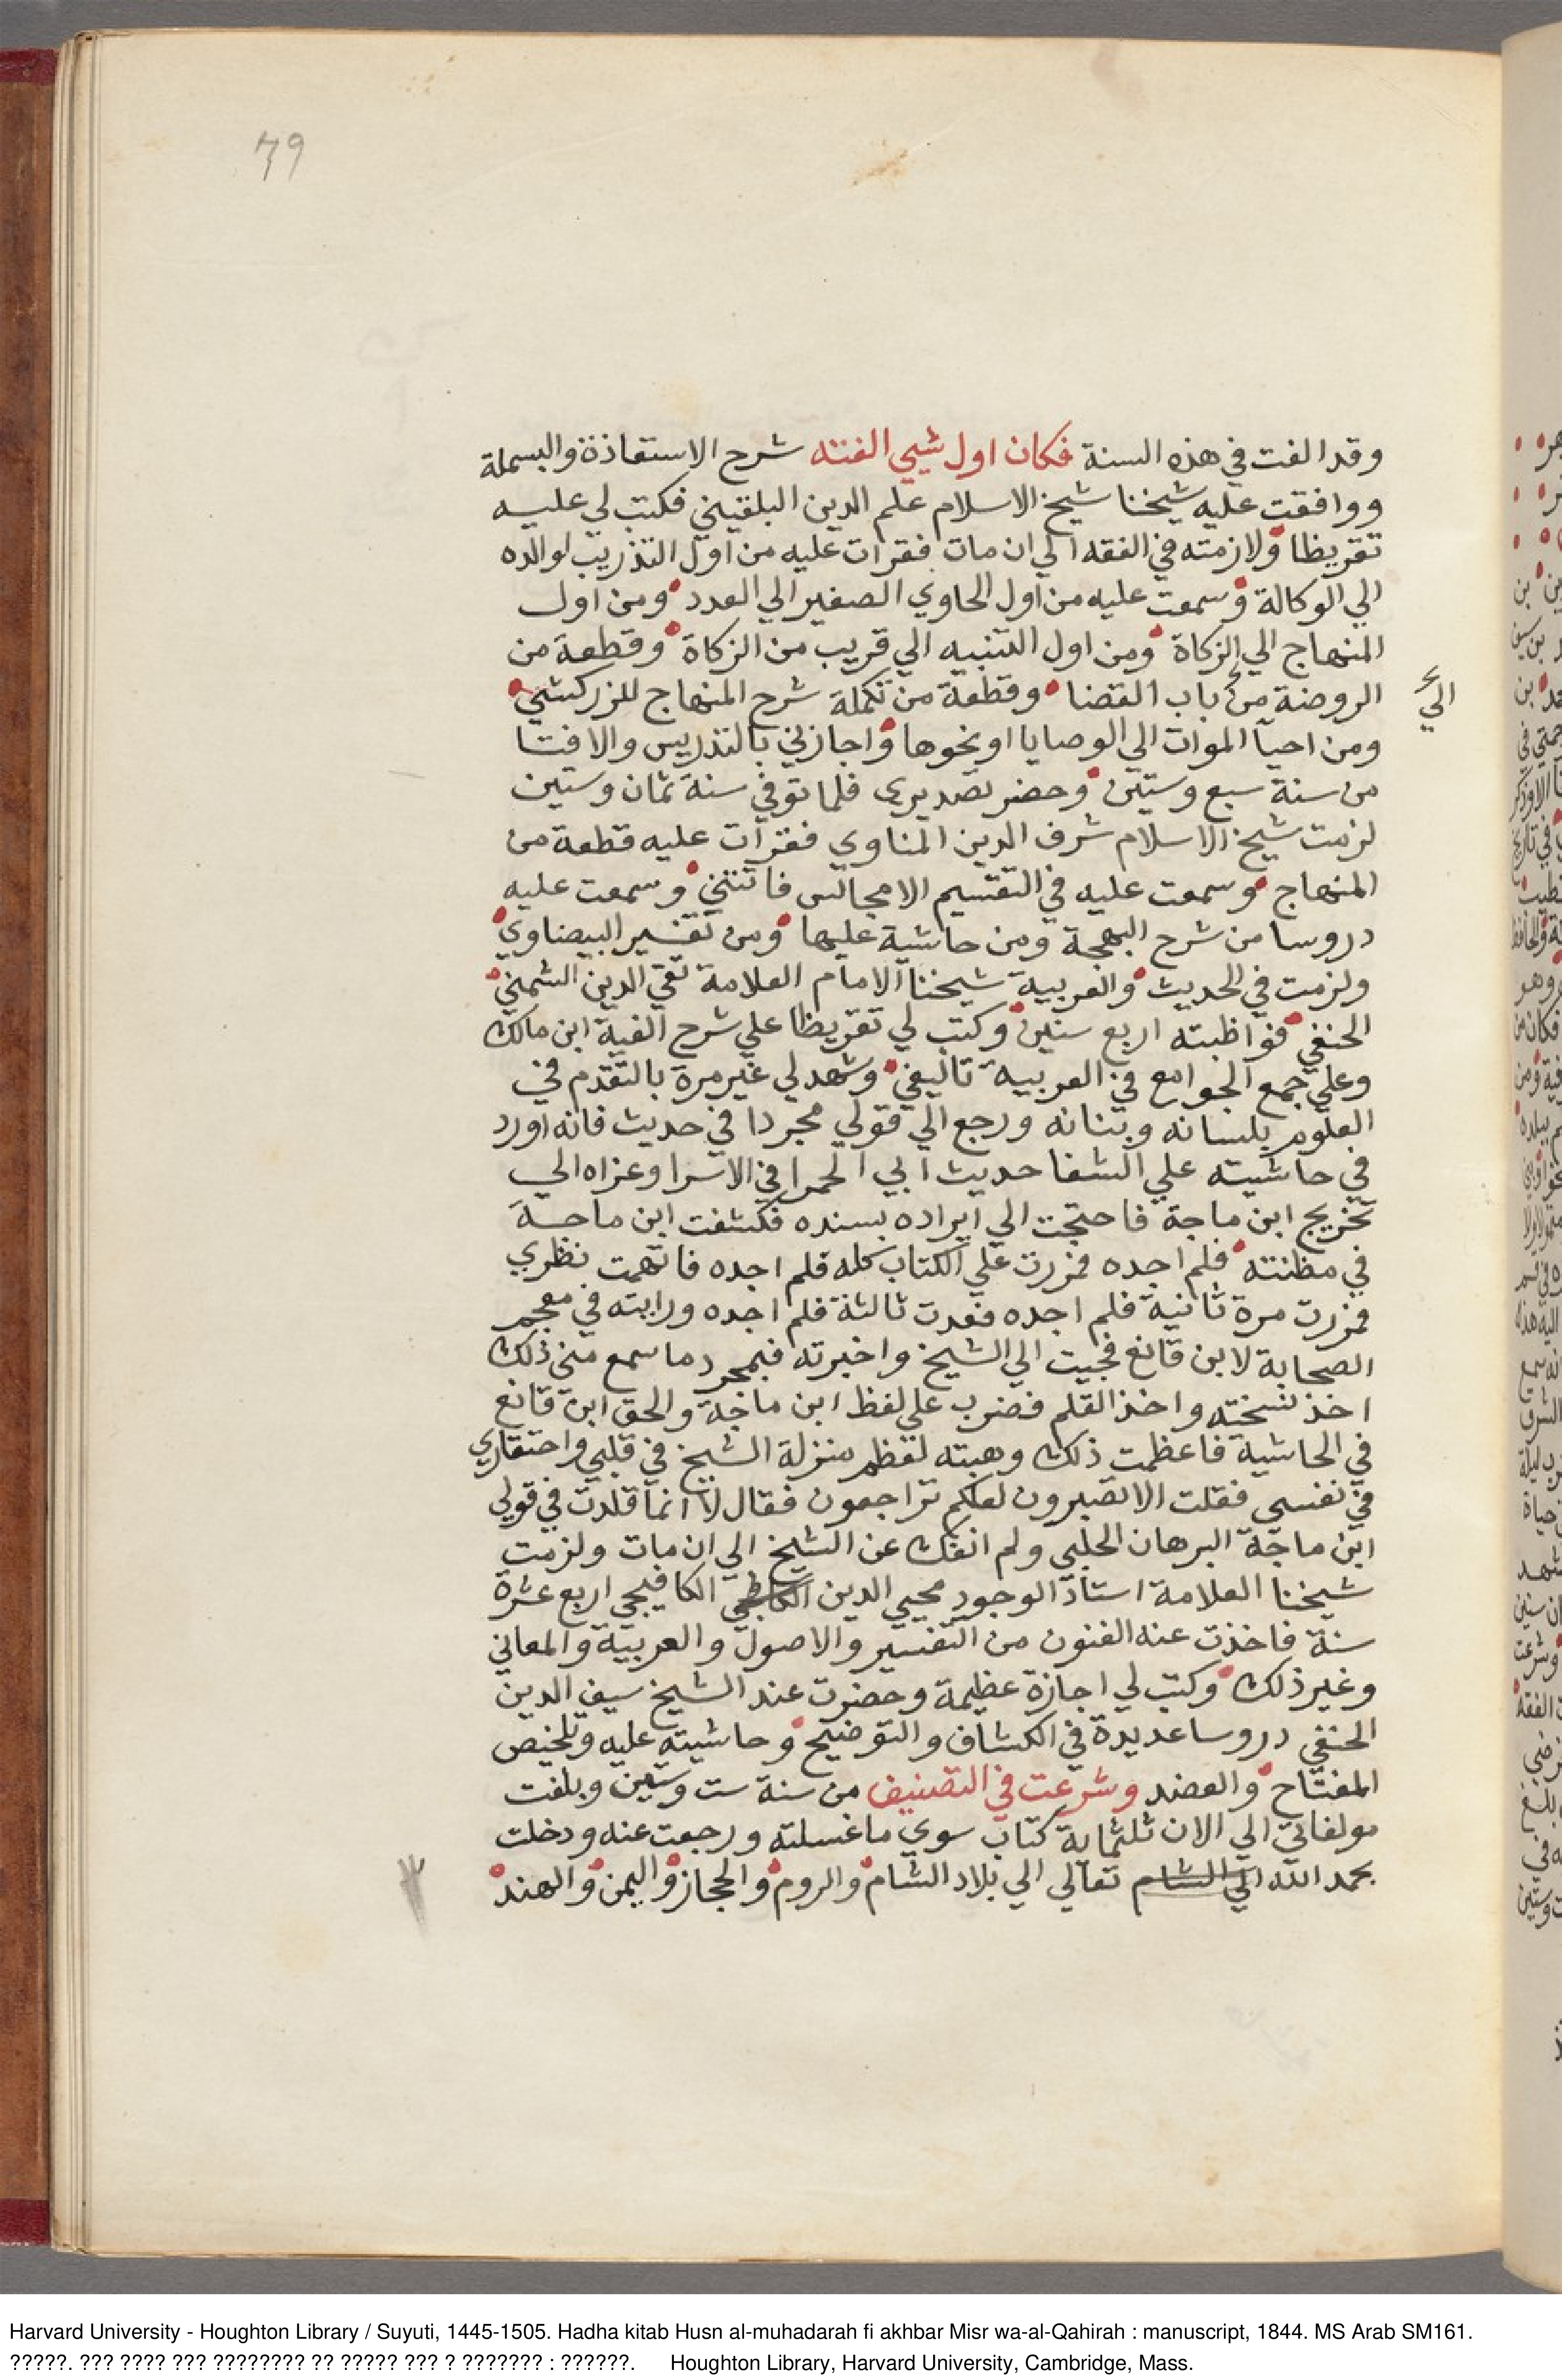 79
وقد الفت في هذه السنة فكان اول شيي الفته شرح الاستعاذة والبسملة
ووافقت عليه شيخنا شيخ الاسلام علم الدين البلقيني فكتب لي عليه
تقريظا ولازمته في الفقه الي ان مات فقرات عليه من اول التدريب لوالده
الي الوكالة وسمعت عليه من اول الحاوي الصغير الي العدد ومن اول
المنهاج الي الزكاة ومن اول التنبيه الي قريب من الزكاة وقطعة من
الروضة من باب القضا وقطعة من تكملة شرح المنهاج للزركشي
الي
ومن احيا الموات الي الوصايا او نحوها واجازني بالتدريس والافتا
من سنة سبع وستين وحضر تصديري فلما توفي سنة ثمان وستين
لزمت شيخ الاسلام شرف الدين المناوي فقرات عليه قطعة من
المنهاج وسمعت عليه في التقسيم الا مجالس فاتتني وسمعت عليه
دروسا من شرح البهجة ومن حاشية عليها ومن تفسير البيضاوي
ولزمت في الحديث والعربية شيخنا الامام العلامة تقي الدين الشمني
الحنفي فواظبته اربع سنين وكتب لي تقريظا علي شرح الفية ابن مالك
وعلي جمع الجوامع في العربية تاليفي وشهد لي غير مرة بالتقدم في
العلوم بلسانه وبنانه ورجع الي قولي مجردا في حديث فانه اورد
في حاشيته علي الشفا حديث ابي الحمرا في الاسرا وعزاه الي
تخريج ابن ماجة فاحتجت الي ايراده بسنده فكشفت ابن ماجة
في مظنته فلم اجده فمررت علي الكتاب كله فلم اجده فاتهمت نظري
فمررت مرة ثانية فلم اجده فعدت ثالثة فلم اجده ورايته في معجم
الصحابة لابن قانع فجيت الي الشيخ واخبرته فبمجرد ما سمع مني ذلك
اخذ نسخته واخذ القلم فضرب علي لفظ ابن ماجة والحق ابن قانع
في الحاشية فاعظمت ذلك وهبته لعظم منزلة الشيخ في قلبي واحتقاري
في نفسي فقلت الا تصبرون لعلكم تراجعون فقال لا انما قلدت في قولي
ابن ماجة البرهان الحلبي ولم انفك عن الشيخ الي ان مات ولزمت
شيخنا العلامة استاذ الوجود محيي الدين الكافيجي اربع عشرة
سنة فاخذت عنه الفنون من التفسير والاصول والعربية والمعاني
وغير ذلك وكتب لي اجازة عظيمة وحضرت عند الشيخ سيف الدين
الحنفي دروسا عديدة في الكشاف والتوضيح وحاشيته عليه وتلخيص
المفتاح والعضد وشرعت في التصنيف من سنة ست وستين وبلغت
مولفاتي الي الان ثلثماية كتاب سوي ما غسلته ورجعت عنه ودخلت
بحمد الله الي الشام تعالي الي بلاد الشام والروم والحجاز واليمن والهند
Harvard University - Houghton Library / Suyuti, 1445-1505. Hadha kitab Husn al-muhadarah fi akhbar Misr wa-al-Qahirah : manuscript, 1844. MS Arab SM161.
?????. ??? ???? ??? ???????? ?? ????? ??? ? ??????? : ??????. Houghton Library, Harvard University, Cambridge, Mass.